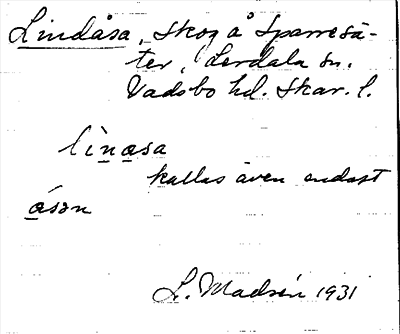 Lindåsa, skog å Sparresä-
ter, Lerdala sn.
Vadsbo hd. Skar. l.
lìnasa
kallas även endast
ásən
L. Madsén 1931